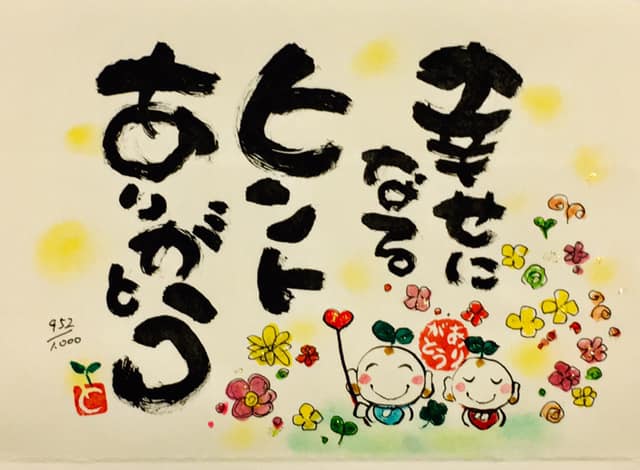 幸せに
なる
ヒント
ありがとう
ありがとう
952/1.000